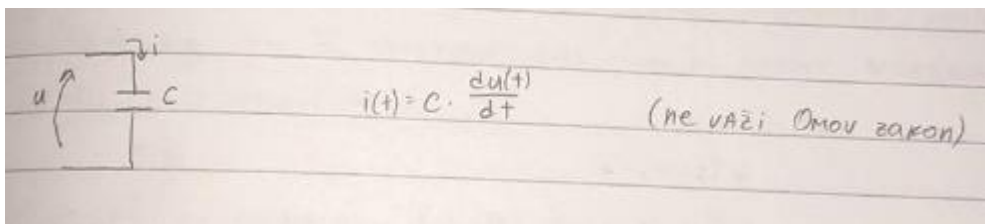 i
u
C
i(t) = C · du(t)/dt (ne vAži Omov zakon)